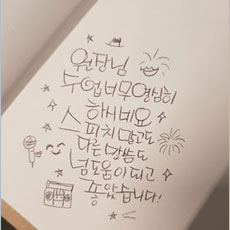 원장님
수업너무열심히
하셔비요
스피치말고도
다른말씀도
넘도움이되고
좋았습니다!